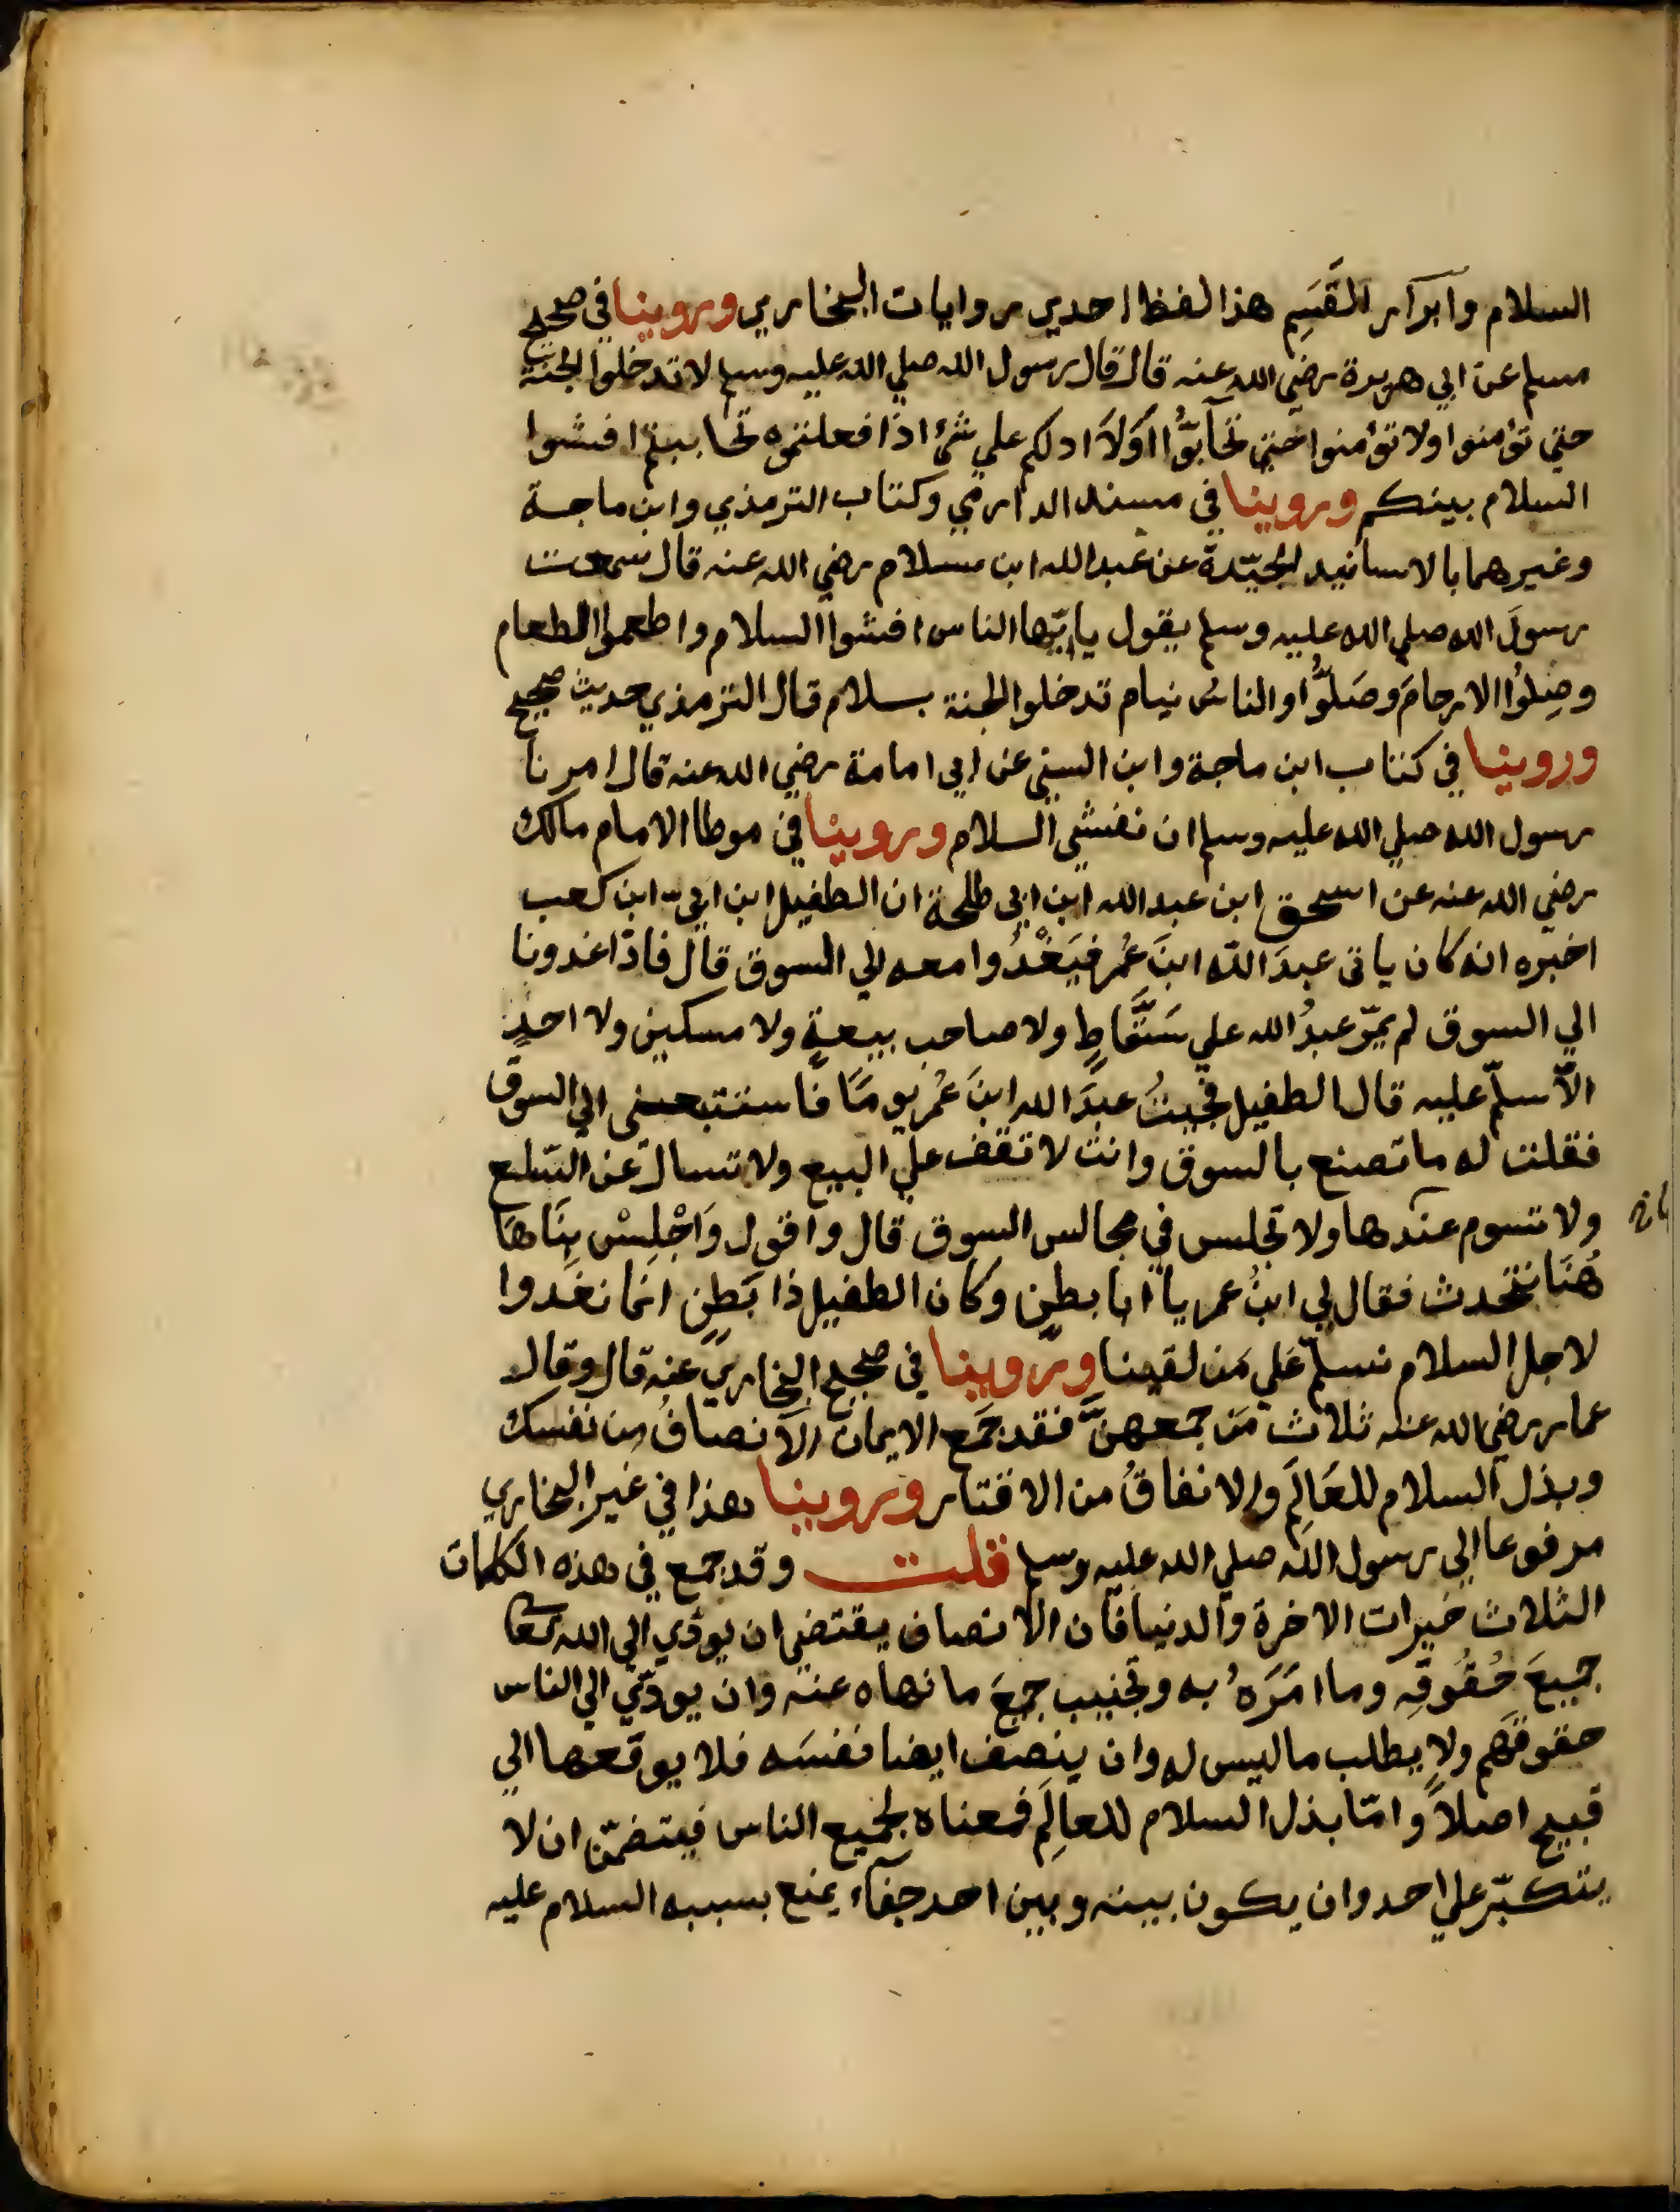 السلام وابرار القَسَمِ هذا لفظ احدي روايات البخاري وروينا في صحيح
مسلم عن ابي هريرة رضي الله عنه قال قال رسول الله صلي الله عليه وسلم لا تدخلوا الجنة
حتي تؤمنوا ولا تؤمنوا حتي تحآبوُّا اَوَلاَ ادلكم علي شئ اذا فعلتموه تحاببتم افشوا
السلام بينكم وروينا في مسند الدارمي وكتاب الترمذي وابن ماجة
وغيرهما بالاسانيد الجيّدة عن عبد الله ابن سلام رضي الله عنه قال سمعت
رسولَ الله صلي الله عليه وسلم يقول يا يّها الناس افشوا السلام واطعموا الطعام
وصِلُوا الارحامَ وصَلُّوا والناسُ نيام تدخلوا الجنة بسلام قال الترمذي حديث صحيح
وروينا في كتاب ابن ماجة وابن السني عن ابي امامة رضي الله عنه قال امرنا
رسول الله صلي الله عليه وسلم ان نفشي السلام وروينا في موطا الامام مالك
رضي الله عنه عن اسحق ابن عبد الله ابن ابي طلحة ان الطفيل ابن ابيّ ابن كعب
اخبره انه كان ياتى عبدَ الله ابنَ عُمر فيَغْدُوا معه الي السوق قال فاذا غدونا
الي السوق لم يمرّ عبدُ الله علي سَقَّاطٍ ولا صاحب بيعةٍ ولا مسكين ولا احدٍ
الاّ سلّم عليه قال الطفيل فجيتُ عبدَ الله ابنَ عُمر يومًا فاستتبعنى الي السوق
فقلت له ما تصنع بالسوق وانت لا تقف علي البيع ولا تسال عن السّلع
ولا تسوم عندها ولا تجلس في مجالس السوق قال واقول وَاجْلِسْ بِنَا هَا
هُنَا نتحدث فقال لي ابنُ عمر يا ابا بطن وكان الطفيل ذا بَطنٍ انما نغدوا
لاجل السلام نسلّم عَلي مَن لقينا وروينا في صحيح البخاري عنه قال وقال
عمار رضي الله عنه ثلاث مَن جمعهنّ فقد جَمع الايمان الانصافُ من نفسك
وبذل السلام للعَالَمِ والانفاقُ من الاقتار وروينا هذا في غير البخاري
مرفوعا الي رسول الله صلي الله عليه وسلم قلت وقد جمع في هذه الكلمات
الثلاث خيرات الاخرة والدنيا فان الانصاف يقتضي ان يودّي الي الله تعا
جميعَ حُقُوقِه وما امَرَهُ به وتجنيب جميعَ ما نهاه عنه وان يودّي الي الناس
حقوقَهم ولا يطلب ما ليس له وان ينصف ايضا نفسَه فلا يوقعها الي
قبيح اصلاً وامّا بذل السلام للعالَمِ فمعناه لجميع الناس فيتضمّن ان لا
يتكبّر علي احد وان يكون بينه وبين احد جفآء يمنع بسببه السلام عليه